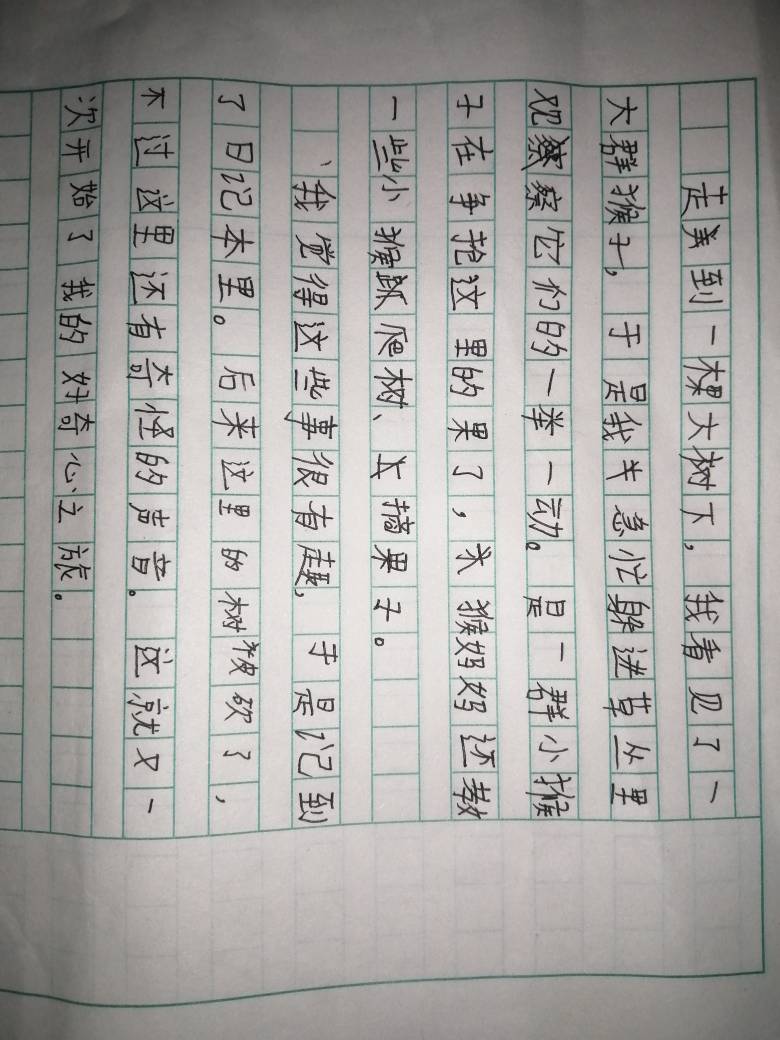 走到一棵大树下，我看见了一
大群猴子，于是我急忙躲进草丛里
观察它们的一举一动。是一群小猴
子在争抢这里的果了，猴妈妈还教
一些小猴爬树、摘果子。
、我觉得这些事很有趣，于是记到
了日记本里。后来这里的树被砍了，
不过这里还有奇怪的声音。这就又一
次开始了我的好奇心之旅。